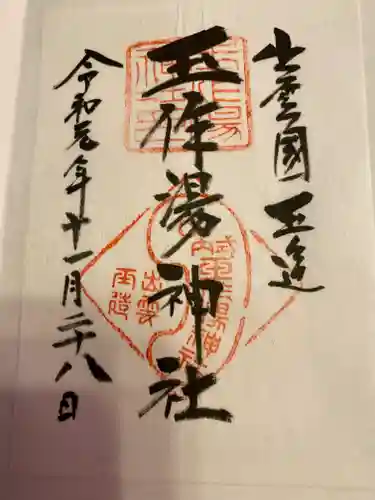 出雲國玉造
玉作湯神社
令和元年十一月二十八日
出雲
玉造